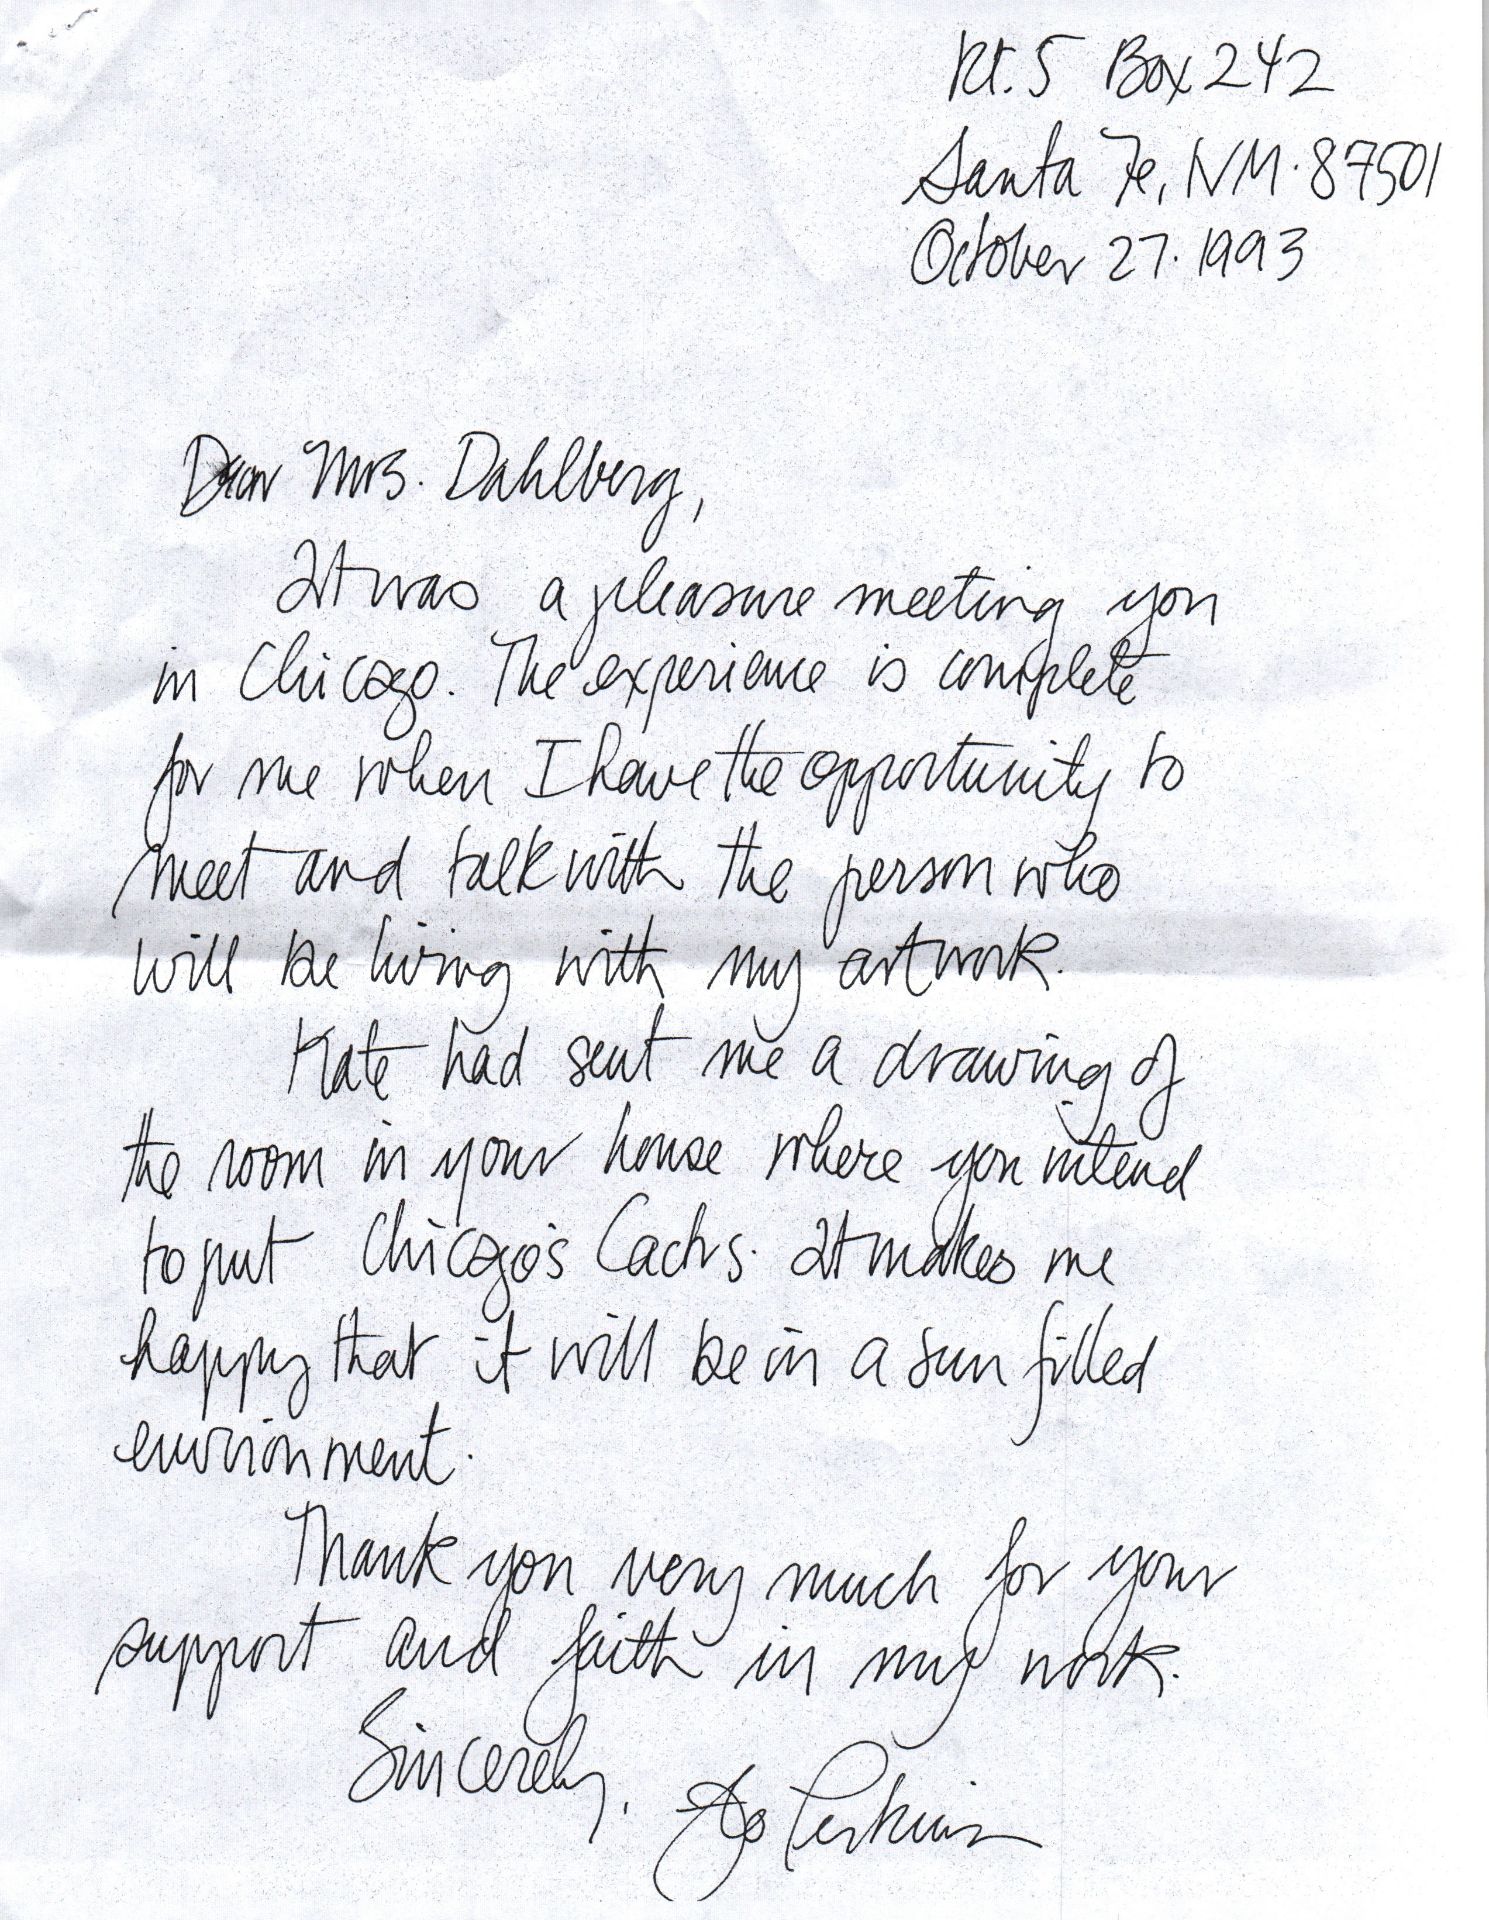 Rt. 5 Box 242
Santa Fe, NM. 87501
October 27. 1993
Dear Mrs. Dahlberg,
It was a pleasure meeting you
in Chicago. The experience is complete
for me when I have the opportunity to
meet and talk with the person who
will be living with my artwork.
Kate had sent me a drawing of
the room in your house where you intend
to put Chicago's Cacts. It makes me
happy that it will be in a sun filled
environment.
Thank you very much for your
support and faith in my work.
Sincerely, Jo Perkins